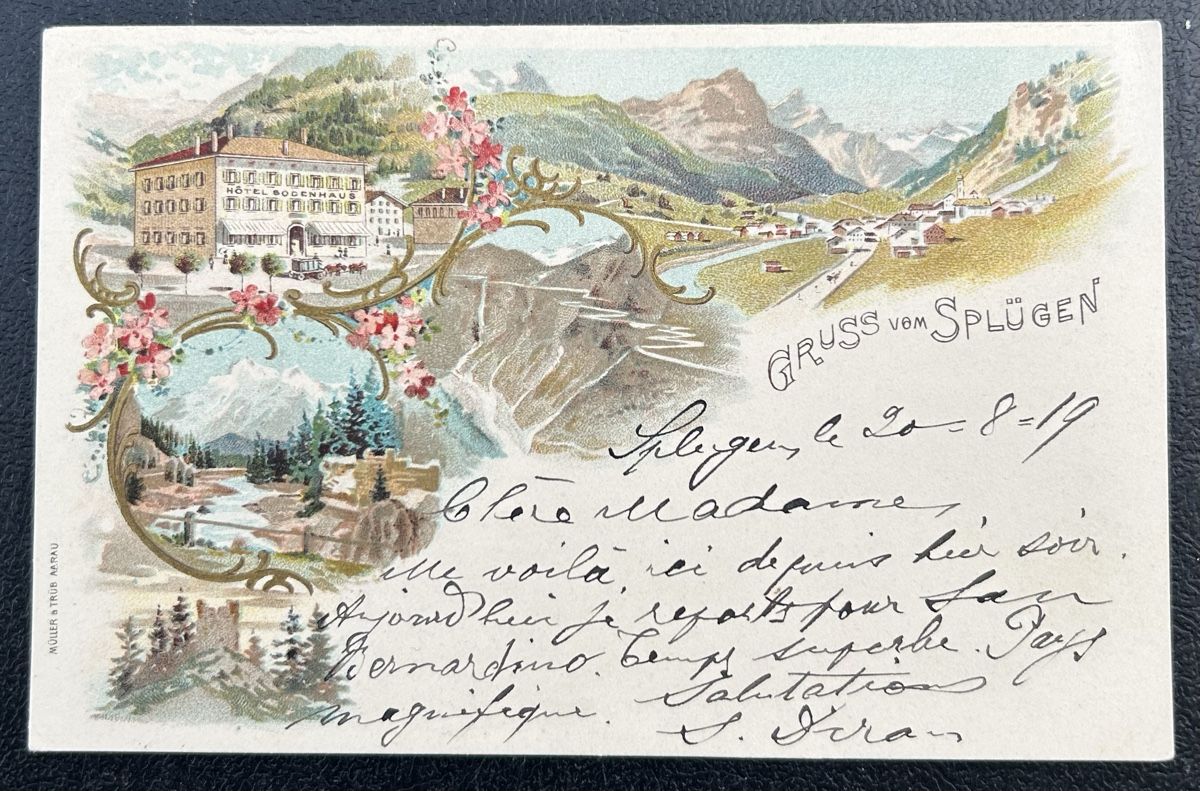 HÔTEL BODENHAUS
GRUSS VOM SPLÜGEN
Splugen, le 20=8=19
Chère Madame,
Me voilà ici depuis hier soir.
Aujourd'hui je reparts pour San
Bernardino. Temps superbe. Pays
magnifique. Salutations
S.
MÜLLER & TRÜB AARAU